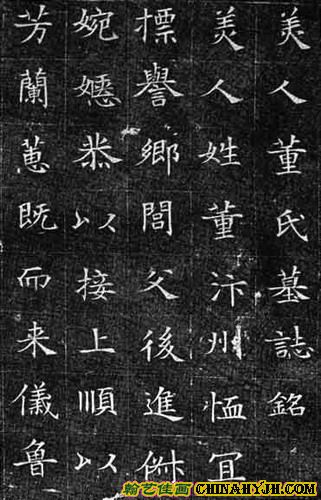 美人董氏墓誌銘
美人姓董汴州恤冝
摽譽鄉閭父後進俶
婉嫕恭以接上順以
芳蘭蕙既而来儀魯
翰艺佳画 CHINAHYJH.COM